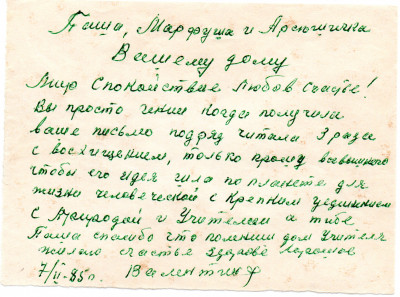 Паша, Марфуша и Арсюшичка
Вашему дому
Мир Спокойствие Любов Счастье!
Вы просто гении когда получила
ваше письмо подряд читала 3 раза
с восхищением, только прошу всевышнего
чтобы его идея жила по планете для
жизни человеческой с крепким уединением
с Природой и Учителем а тибе
Паша спасибо что помниш дом Учителя
желаю счастье здоровье хорошого
7/II-85 г. Валентина